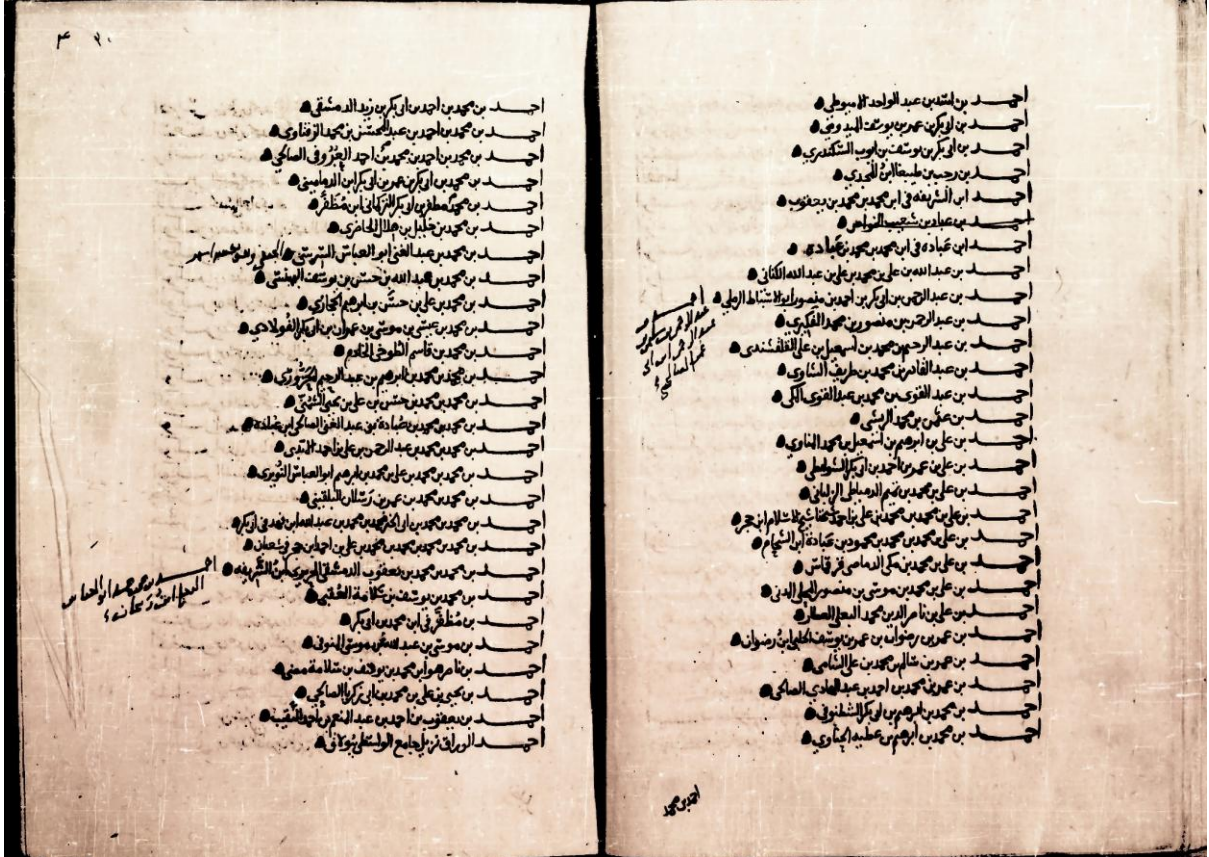 احمد بن اسد بن عبد الواحد الاميوطي
احمد بن ابي بكر بن عمر بن يوسف الميدومي
احمد بن ابي بكر بن يوسف بن ايوب السكندري
احمد بن رجب بن طيبغا ابن المجدي
احمد ابن الشريفة في ابن محمد بن محمد بن يعقوب
احمد بن عباد بن شعيب
احمد ابن عبادة في ابن محمد بن محمد بن عبادة
احمد بن عبد الله بن علي بن محمد بن علي بن عبد الله الكناني
احمد بن عبد الرحمن بن ابي بكر بن احمد بن منصور ابو الاسباط الرملي
احمد بن عبد الرحمن بن منصور بن محمد الفكيري
احمد بن عبد الرحيم بن محمد بن اسمعيل بن علي القلقشندي
احمد بن عبد القادر بن محمد بن طريف الشاوي
احمد بن عبد القوي بن محمد بن عبد القوي المكي
احمد بن عثمن بن محمد الريشي
احمد بن علي بن ابرهيم بن اسمعيل بن محمد المناوي
احمد بن علي بن عمر بن احمد بن ابي بكر الشوايطي
احمد بن علي بن محمد بن تميم الدمياطي الزلباني
احمد بن علي بن محمد بن محمد بن علي بن احمد شيخنا شيخ الاسلام ابن حجر
احمد بن علي بن محمد بن محمد بن محمود بن عبادة ابن الشحام
احمد بن علي بن محمد بن مكي الدماصي قرقاش
احمد بن علي بن محمد بن موسى بن منصور المحلي المدني
احمد بن علي بن ناصر الدين محمد البعلي العطار
احمد بن عمر بن رضوان بن عمر بن يوسف الحلبي ابن رضوان
احمد بن عمر بن سالم بن محمد بن علي الشامي
احمد بن عمر بن محمد بن احمد بن عبد الهادي الصالحي
احمد بن محمد بن ابرهيم بن ابي بكر الشطنوفي
احمد بن محمد بن ابرهيم بن عطية الحناوي
احمد بن محمد
احمد بن
عبد الرحمن بن
عبد الرحمن
احمد بن محمد بن احمد بن ابي بكر بن زيد الدمشقي
احمد بن محمد بن احمد بن عبد المحسن بن محمد الزفتاوي
احمد بن محمد بن احمد بن محمد بن احمد الصالحي
احمد بن محمد بن ابي بكر بن عمر بن ابي بكر ابن الدماميني
احمد بن محمد بن مظفر بن ابو بكر التركماني ابن مظفر
احمد بن محمد بن خليل بن هلال الحاضري
احمد بن محمد بن عبد الغني ابو العباس السرسي الحنفي
احمد بن محمد بن عبد الله بن حسن بن يوسف البهنسي
احمد بن محمد بن علي بن حسن بن ابرهيم الحجازي
احمد بن محمد بن عيسى بن موسى بن عمران بن ابي بكر الفولاذي
احمد بن محمد بن قاسم الطوخي الخادم
احمد بن محمد بن محمد بن ابرهيم بن عبد الرحيم الجروري
احمد بن محمد بن محمد بن حسن بن علي بن يحيى الشمني
احمد بن محمد بن محمد بن عبادة بن عبد الغني الصالحي ابن عبادة
احمد بن محمد بن محمد بن عبد الرحمن بن علي بن احمد الهندي
احمد بن محمد بن محمد بن علي بن محمد بن ابرهيم ابو العباس النويري
احمد بن محمد بن محمد بن عمر بن رسلان البلقيني
احمد بن محمد بن محمد بن ابي الخير محمد بن محمد بن عبد الله ابن فهد في ابي بكر
احمد بن محمد بن محمد بن محمد بن محمد بن علي بن احمد ابن حجر في شعبان
احمد بن محمد بن محمد بن يعقوب الدمشقي الحريري ابن الشريفه
احمد بن محمد بن يوسف بن سلامة العقبي
احمد بن مظفر في ابن محمد بن ابي بكر
احمد بن موسى بن عبد الله بن موسى المنوفي
احمد بن ناصر هو ابن محمد بن يوسف بن سلامة مضى
احمد بن يحيى بن علي بن محمد بن ابي زكريا الصالحي
احمد بن يعقوب بن احمد بن عبد المنعم بن احمد النقيب
احمد الوراق نزيل جامع الواسطي ببولاق
احمد بن محمد ابو العباس